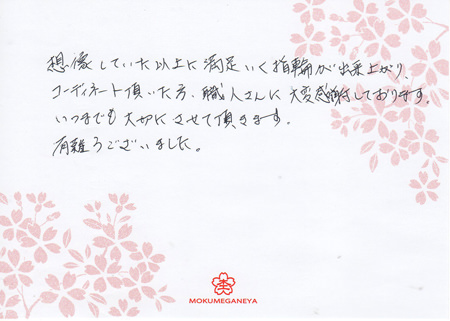 想像していた以上に満足いく指輪が出来上がり、
コーディネート頂いた方、職人さんに大変感謝しております。
いつまでも大切にさせて頂きます。
有難うございました。
MOKUMEGANEYA